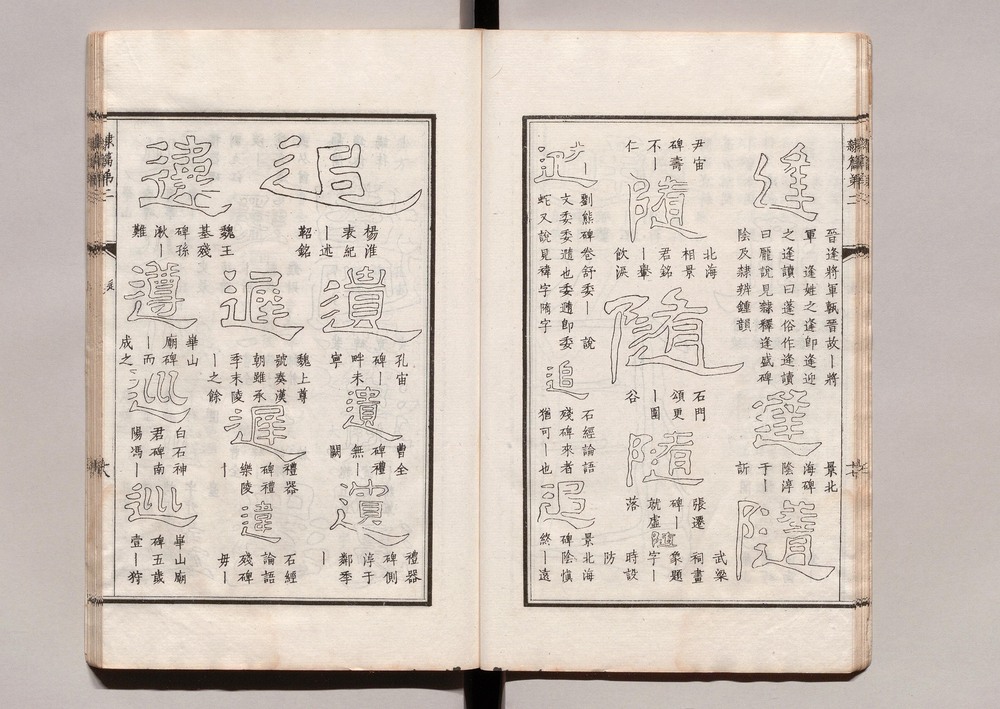 隸篇第二
逢
晉逢將軍執晉故｜將
軍　逢姓之逢即逢迎
之逢讀曰蓬俗作逄讀
曰龐說見隸釋逢盛碑
陰及隸辨鍾韻
逢
景北
海碑
陰淳
于｜
訢
隨
尹宙
碑壽
不｜
仁
隨
北海
相景
君銘
｜轝
飲淚
隨
石門
頌更
｜圍
谷
隨
張遷
碑｜
就虛
落
隨
武梁
祠畫
象題
字｜
時設
防
迆
劉熊碑卷舒委｜　說
文委委遺也委遺即委
蛇又說見褘字隋字
追
石經論語
殘碑來者
猶可｜也
追
景北海
碑陰慎
終｜遠
追
楊淮
表紀
｜述
韜銘
遺
孔宙
碑｜
畔未
寧
遺
曹全
碑禮
無｜
闕
遺
禮器
碑側
淳于
鄰季
｜
遲
魏上尊
號奏漢
朝雖承
季末陵
｜之餘
遲
禮器
碑禮
樂陵
｜
違
石經
論語
殘碑
毋｜
違
魏王
基殘
碑孫
湫｜
難
遵
華山
廟碑
｜而
成之
巡
白石神
君碑南
陽馮｜
巡
華山廟
碑五歲
壹｜狩
隸篇第二